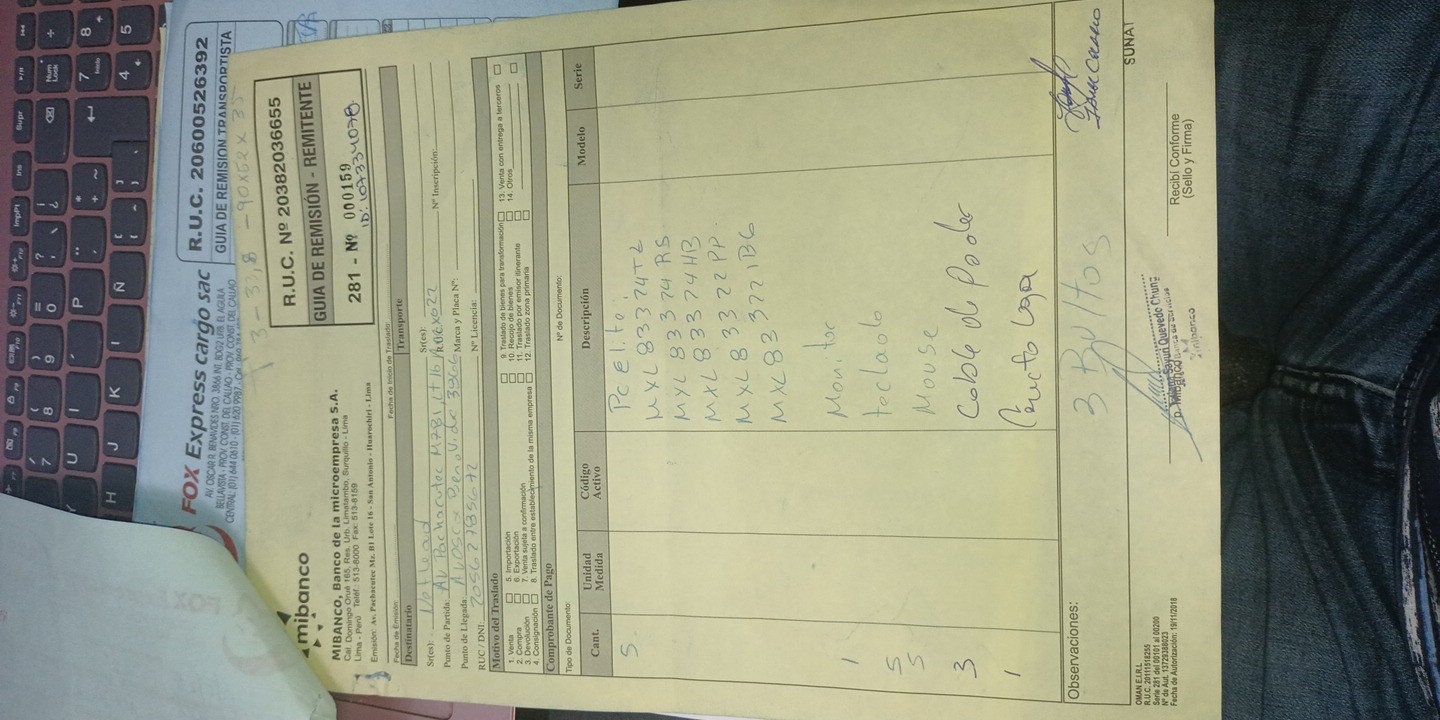 FOX Express cargo sac
AV. OSCAR R. BENAVIDES NRO. 3866 INT. BOG2 URB. EL AGUILA
BELLAVISTA - PROV. CONST. DEL CALLAO - PROV. CONST. DEL CALLAO
R.U.C. 20600526392
GUIA DE REMISIÓN TRANSPORTISTA
3 - 33,8 - 90x62x35
mibanco
MIBANCO, Banco de la microempresa S.A.
Cal. Domingo Orué 165, Res. Urb. Limatambo, Surquillo - Lima
Lima - Perú Teléf.: 513-8000 Fax: 513-8159
Emisión: Av. Pachacutec Mz. B1 Lote 16 - San Antonio - Huarochiri - Lima
R.U.C. Nº 20382036655
GUIA DE REMISIÓN - REMITENTE
281 - Nº 000159
Fecha de Emisión:
Fecha de Inicio de Traslado:
Destinatario
Transporte
Sr(es):
Sr(es):
Punto de Partida: Av Pachacutec MzB1 Lt 16
Nº Inscripción:
Punto de Llegada: Av Oscar Benavides 3866
Marca y Placa Nº:
RUC / DNI:
Nº Licencia:
Motivo del Traslado
1. Venta
2. Compra
3. Devolución
4. Consignación
5. Importación
6. Exportación
7. Venta sujeta a confirmación
8. Traslado entre establecimiento de la misma empresa
9. Traslado de bienes para transformación
10. Recojo de bienes
11. Traslado por emisor itinerante
12. Traslado zona primaria
13. Venta con entrega a terceros
14. Otros
Comprobante de Pago
Tipo de Documento:
Nº de Documento:
Cant.
Unidad Medida
Código Activo
Descripción
Modelo
Serie
5 Pc Elite:
MXL83374T2
MXL83374RS
MXL83374HB
MXL83322PP
MXL833721BG
1 Monitor
5 teclado
5 Mouse
3 Cable de Poder
1
Observaciones:
3 Bultos
Quevedo Chung
p. Mibanco
Recibí Conforme
(Sello y Firma)
OMAN E.I.R.L.
R.U.C. 20111518255
Serie 281 del 00101 al 00200
Nº de Aut. 13729388023
Fecha de Autorización: 19/11/2018
SUNAT